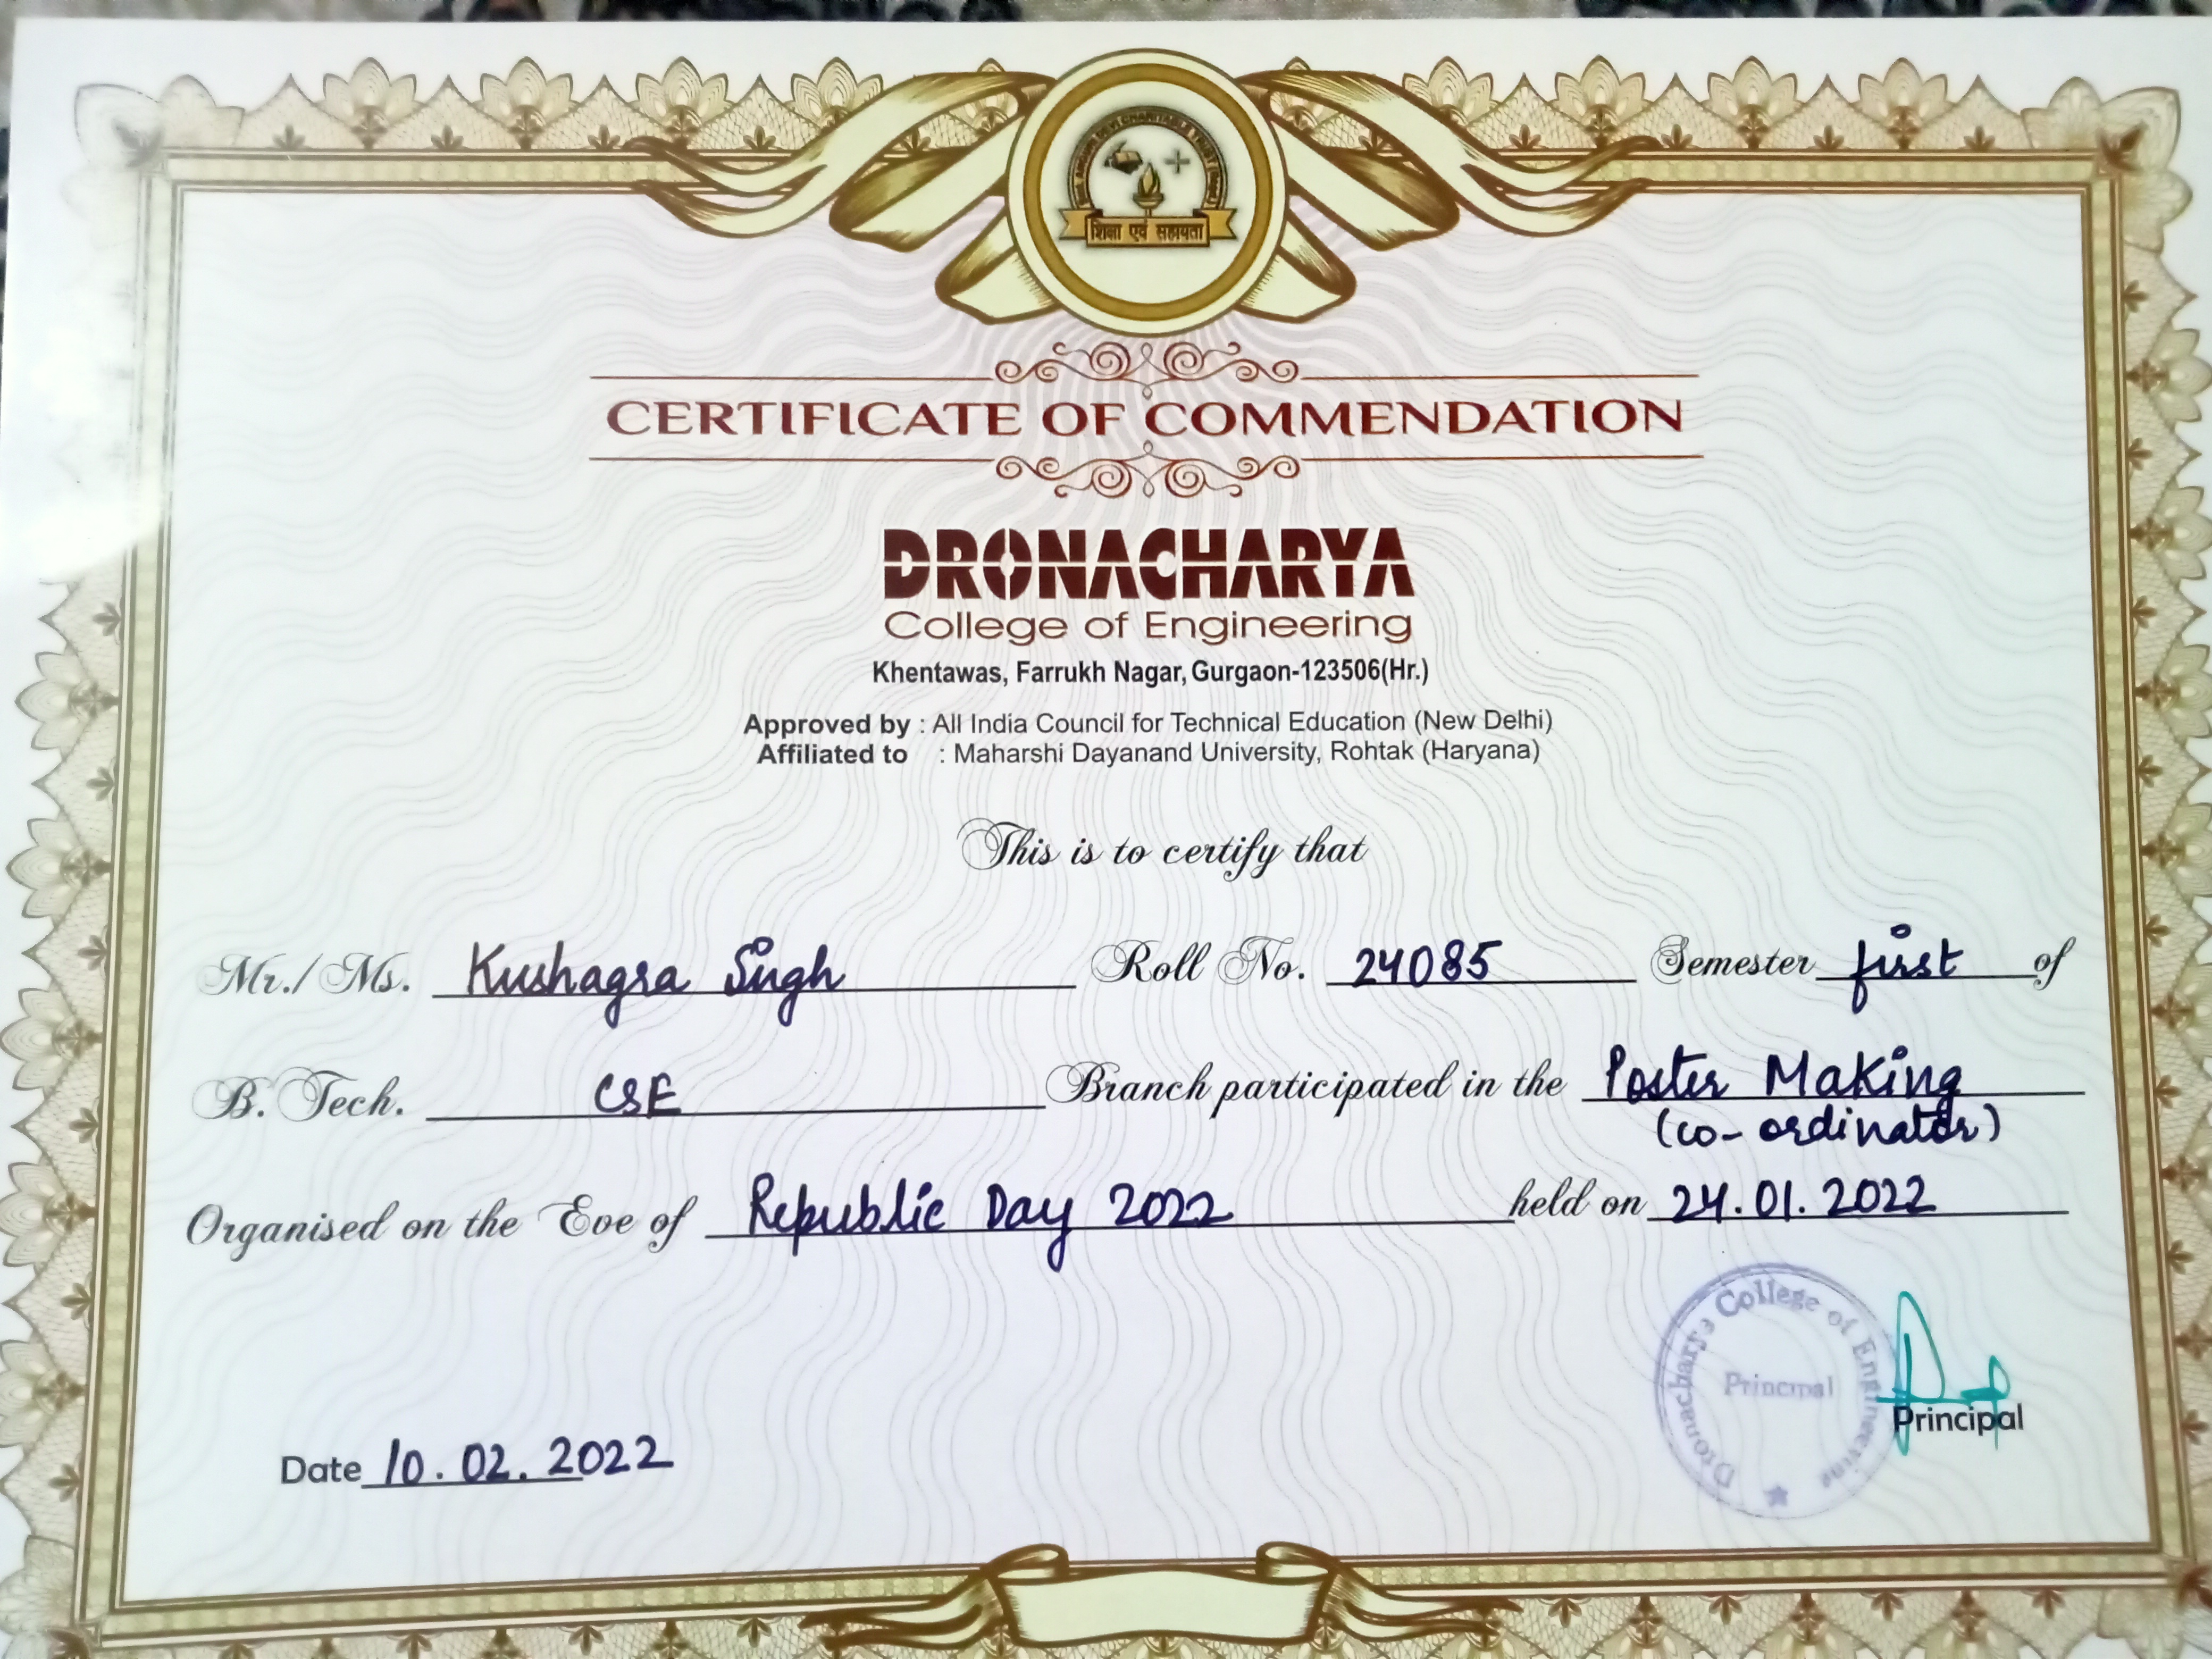 शिक्षा एवं सहायता
CERTIFICATE OF COMMENDATION
DRONACHARYA
College of Engineering
Khentawas, Farrukh Nagar, Gurgaon-123506(Hr.)
Approved by : All India Council for Technical Education (New Delhi)
Affiliated to : Maharshi Dayanand University, Rohtak (Haryana)
This is to certify that
Mr./Ms. Kushagra Singh Roll No. 24085 Semester first of
B. Tech. CSE Branch participated in the Poster Making
(co-ordinator)
Organised on the Eve of Republic Day 2022 held on 24.01.2022
Dronacharya College of Engineering
Principal
Principal
Date 10.02.2022